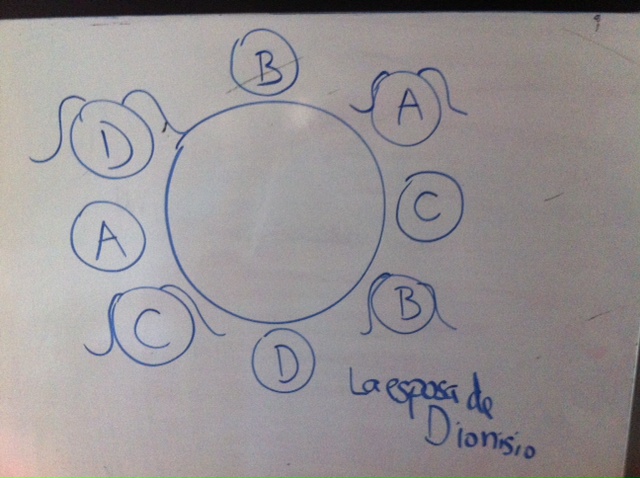 B
A
D
C
A
B
C
D
La esposa de
Dionisio